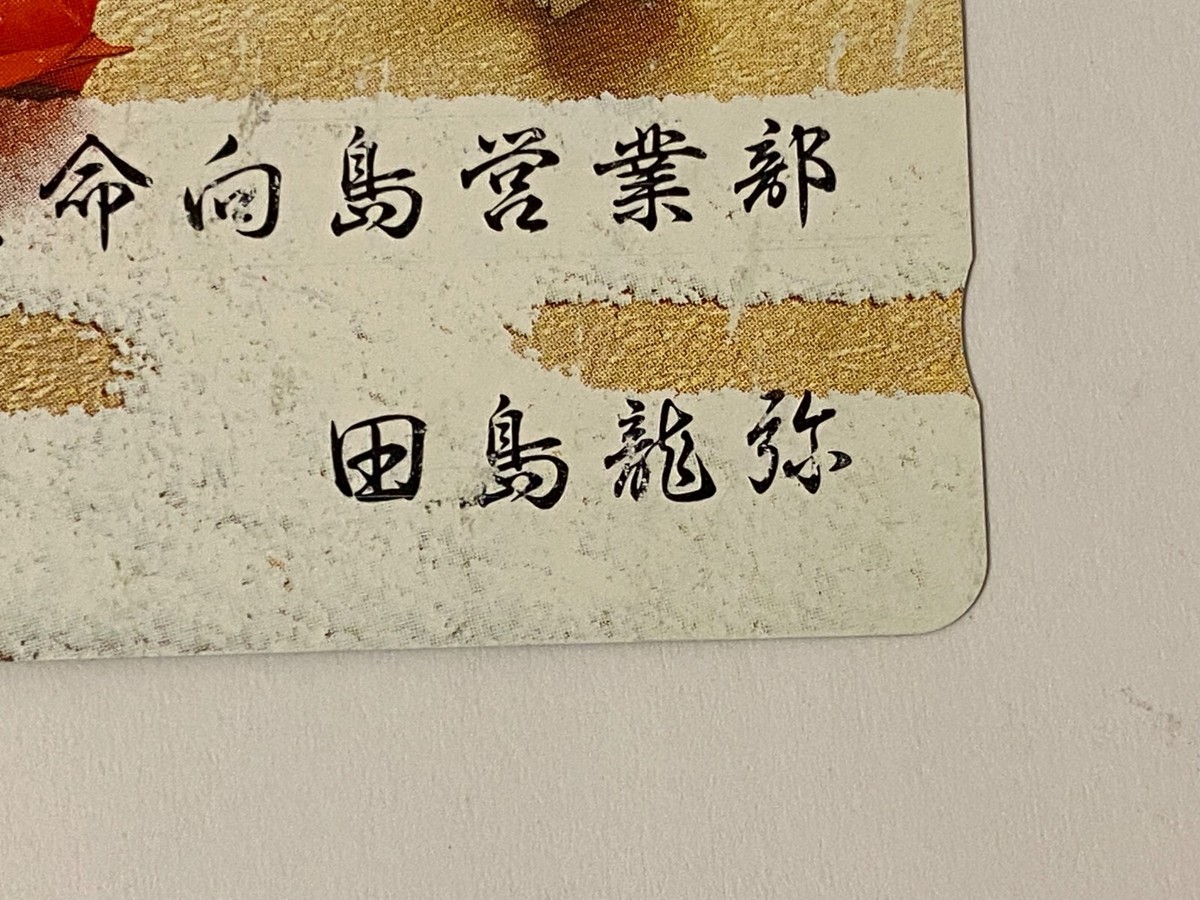 命向島営業部
田島龍弥